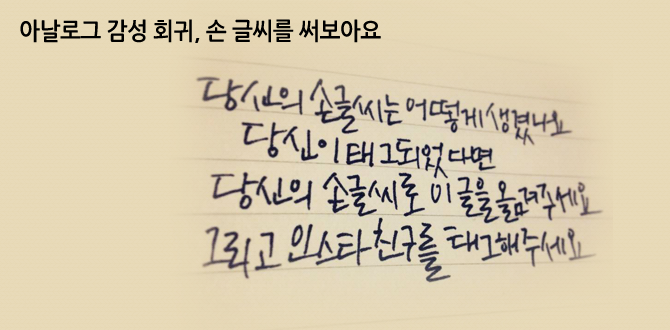 아날로그 감성 회귀, 손 글씨를 써보아요
당신의 손글씨는 어떻게 생겼나요
당신이 태그되었다면
당신의 손글씨로 이 글을 올려주세요
그리고 인스타친구를 태그해주세요